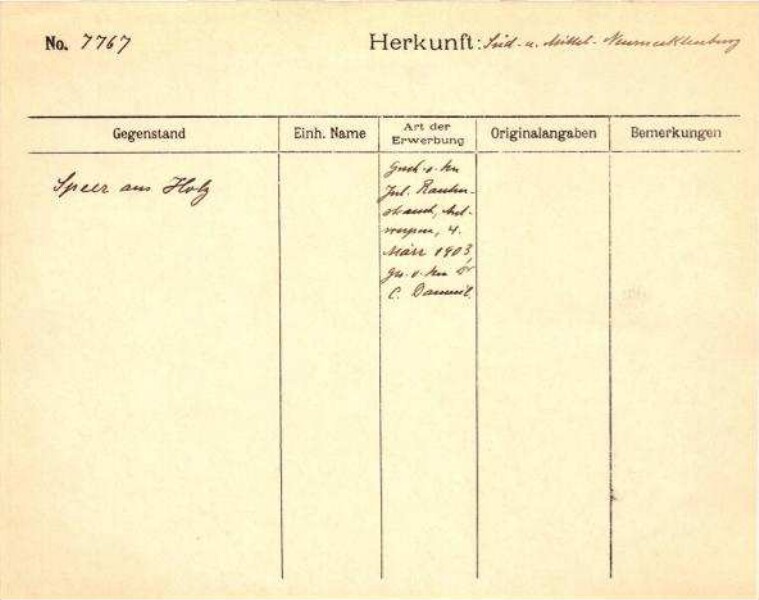 No. 7767 Herkunft: Süd- u. Mittel-Neumecklenburg
Gegenstand Einh. Name Art der Erwerbung Originalangaben Bemerkungen
Speer aus Holz
Gesch. v. Hn
Jul. Rauten-
strauch, Ant-
werpen, 4.
März 1903,
ges. v. Hn Dr
C. Danneil.